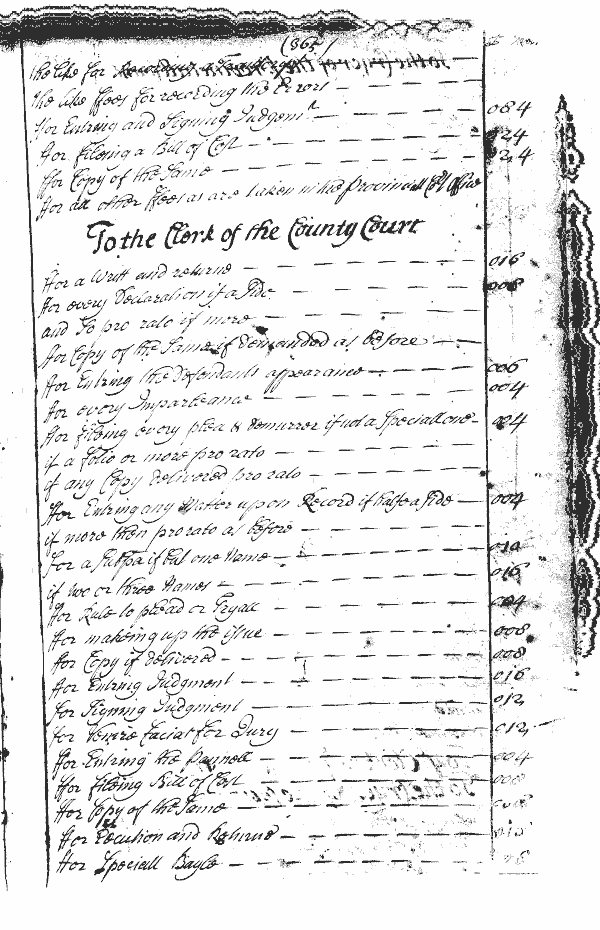 (865)
the like for
the like ffees for recording the Errors
ffor Entring and Signing Judgemt 084
ffor fileing a Bill of Cost 024
ffor Copy of the Same 024
ffor all other ffees as are taken in the Provinciall Office
To the Clerk of the County Court
ffor a Writt and returne 016
ffor every Declaration if a Side 008
and So pro rato if more
ffor Copy of the Same if demanded as before
ffor Entring the Defendants appearance 006
ffor every Imparleance 004
ffor fileing every plea & demurrer if not a Speciall one 004
if a folio or more pro rato
if any Copy delivered pro rato
ffor Entring any Matter upon Record if halfe a Side 004
if more then pro rato as before
for a Subpa if but one Name 010
if two or three Names 016
ffor Rule to plead or Tryall 004
ffor makeing up the issue 008
ffor Copy if delivered 008
ffor Entring Judgment 016
for Signing Judgment 012
ffor Venire facias for Jury 012
ffor Entring the Pannell 004
ffor fileing Bill of Cost 008
ffor Copy of the Same
ffor Execution and Returne
ffor Speciall Bayle